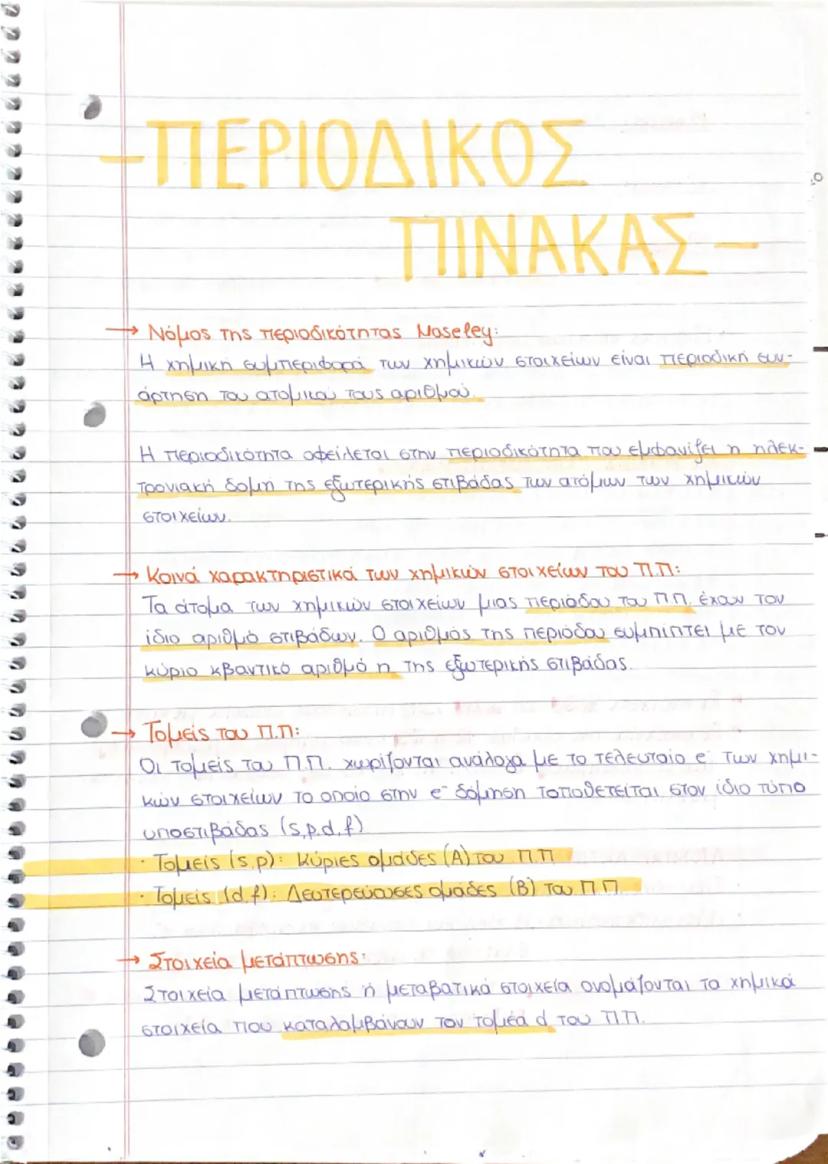 -ΠΕΡΙΟΔΙΚΟΣ
ΠΙΝΑΚΑΣ-
→ Νόμος της περιοδικότητας Moseley:
Η χημική συμπεριφορά των χημικών στοιχείων είναι περιοδική συν-
άρτηση του ατομικού τους αριθμού.
Η περιοδικότητα οφείλεται στην περιοδικότητα που εμφανίζει η ηλεκ-
τρονιακή δομή της εξωτερικής στιβάδας των ατόμων των χημικών
στοιχείων.
→ Κοινά χαρακτηριστικά των χημικών στοιχείων του Π.Π:
Τα άτομα των χημικών στοιχείων μιας περιόδου του Π.Π. έχουν τον
ίδιο αριθμό στιβάδων. Ο αριθμός της περιόδου συμπίπτει με τον
κύριο κβαντικό αριθμό n της εξωτερικής στιβάδας.
→ Τομείς του Π.Π:
Οι τομείς του Π.Π. χωρίζονται ανάλογα με το τελευταίο e⁻ των χημι-
κών στοιχείων το οποίο στην e⁻ δόμηση τοποθετείται στον ίδιο τύπο
υποστιβάδας (s,p,d,f)
· Τομείς (s,p): Κύριες ομάδες (Α) του Π.Π
· Τομείς (d,f): Δευτερεύουσες ομάδες (Β) του Π.Π.
→ Στοιχεία μετάπτωσης:
Στοιχεία μετάπτωσης ή μεταβατικά στοιχεία ονομάζονται τα χημικά
στοιχεία που καταλαμβάνουν τον τομέα d του Π.Π.